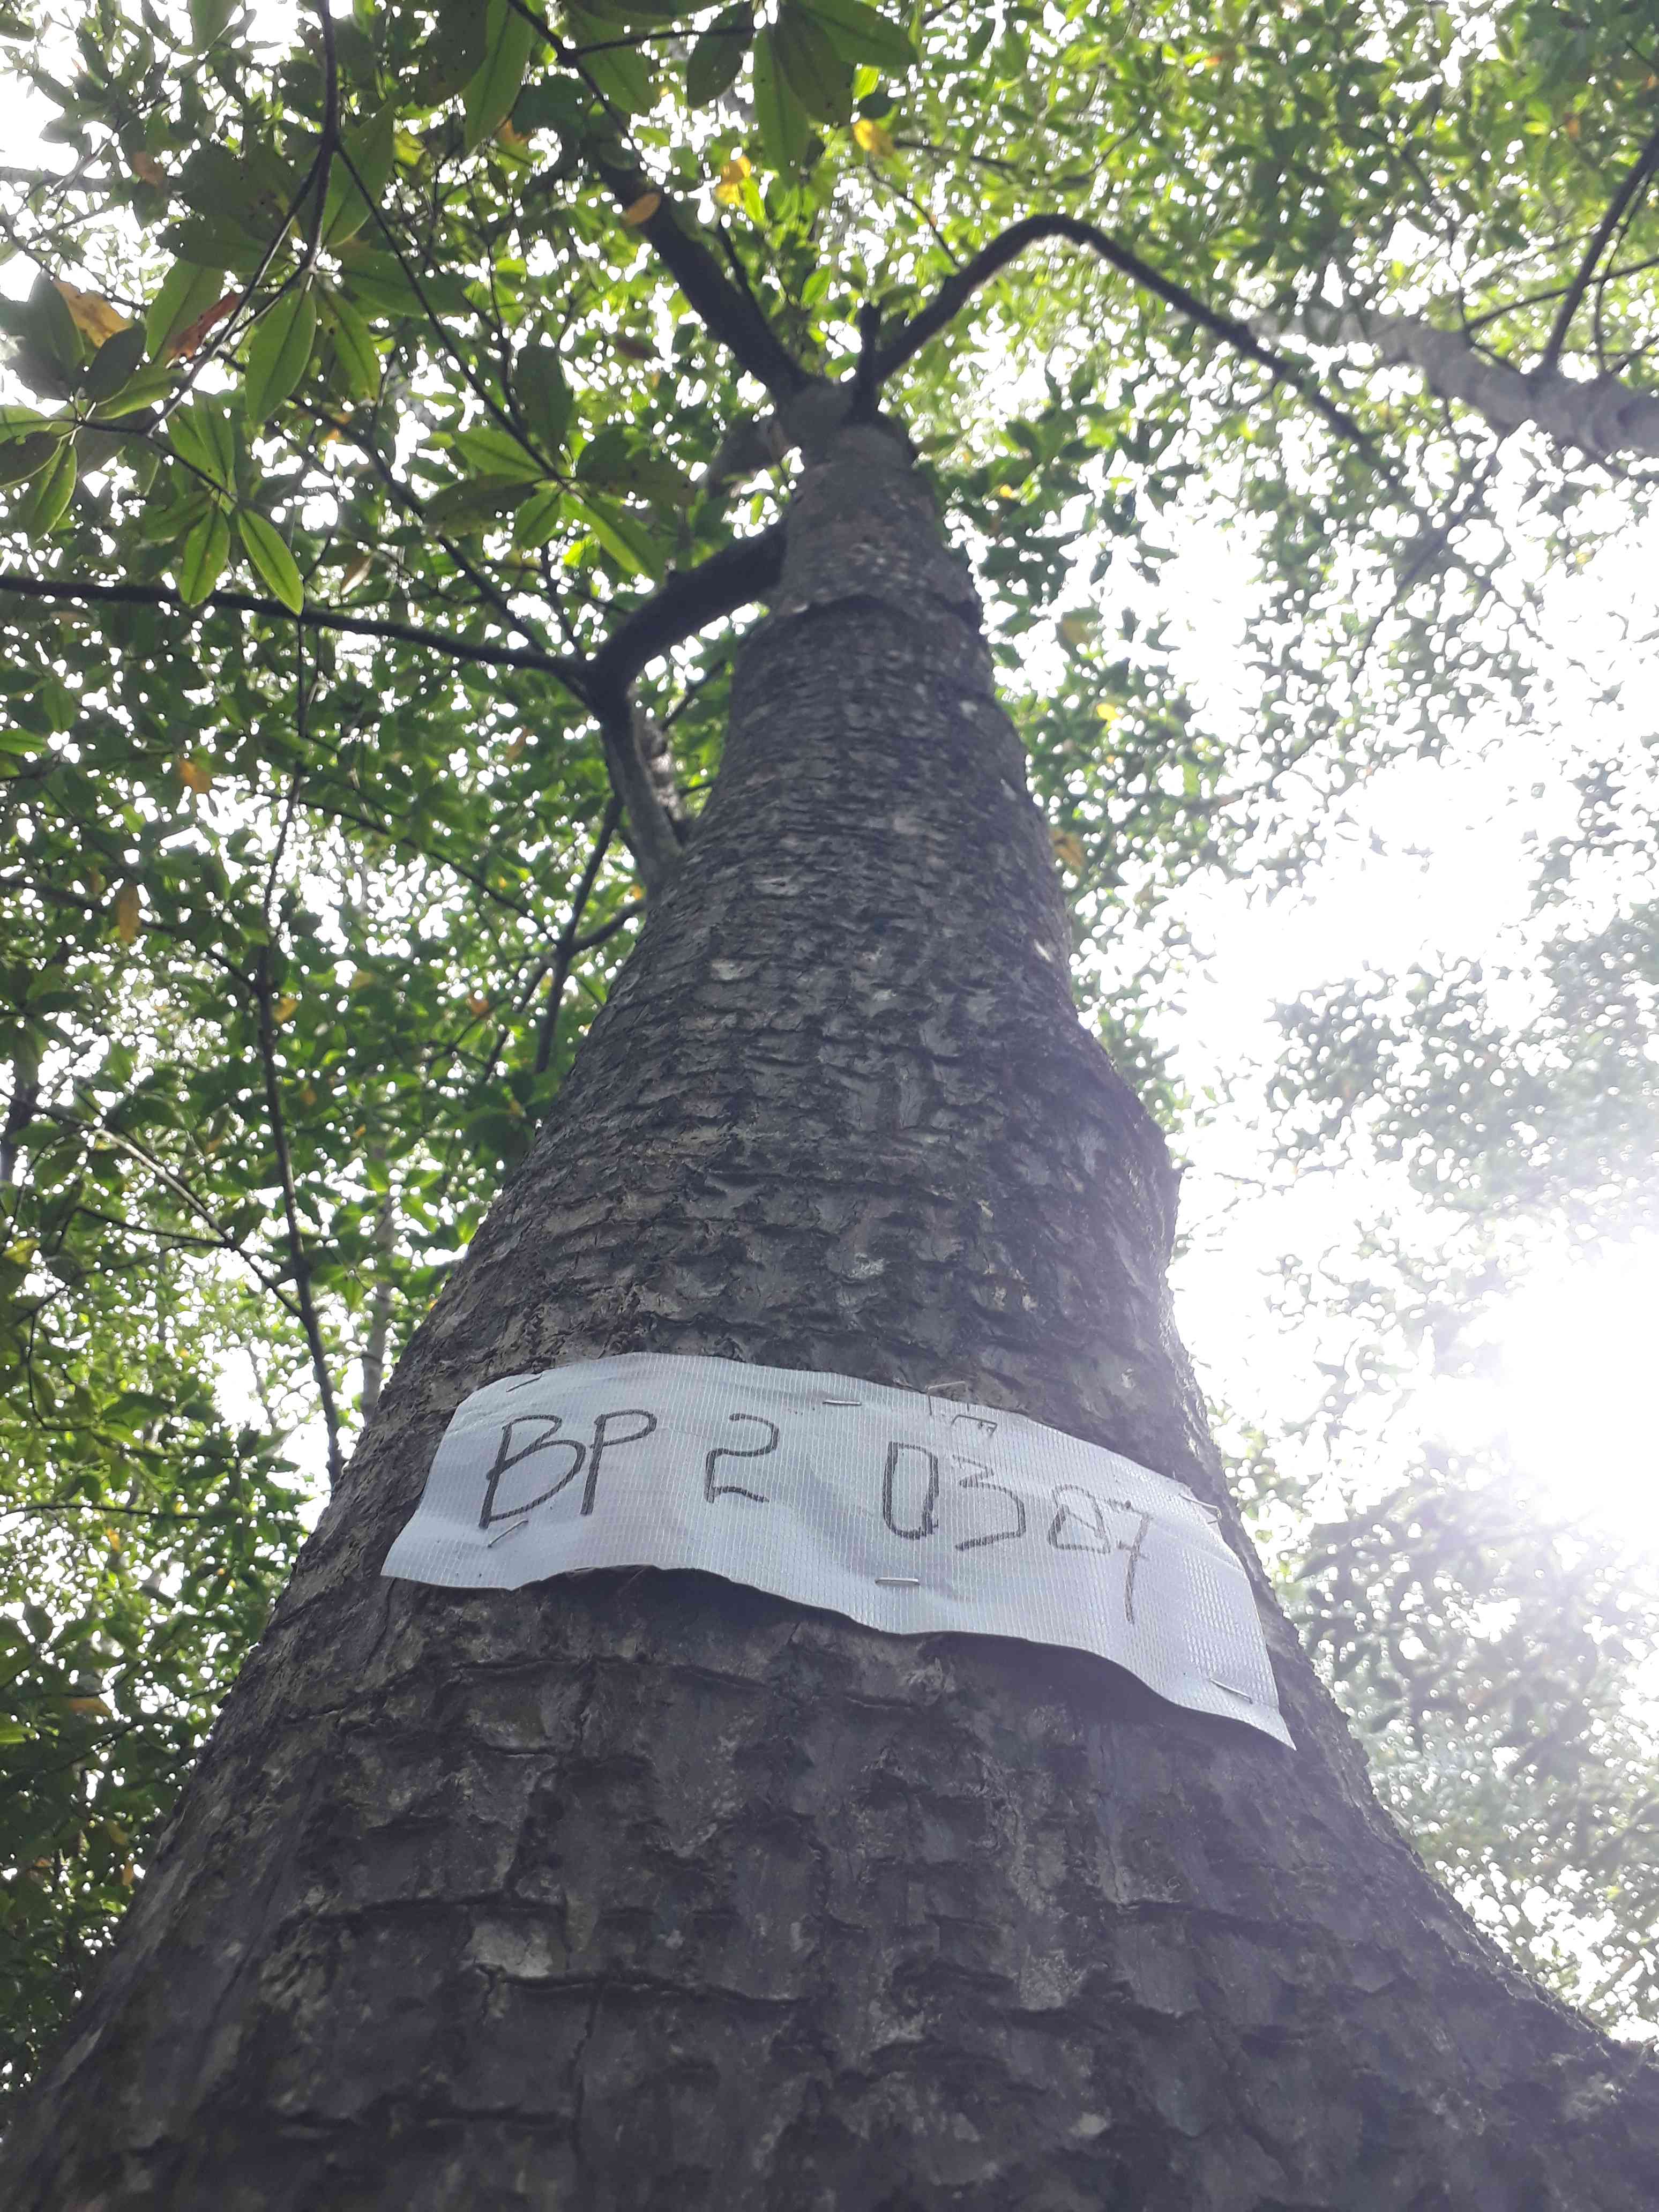 BP 2 0387